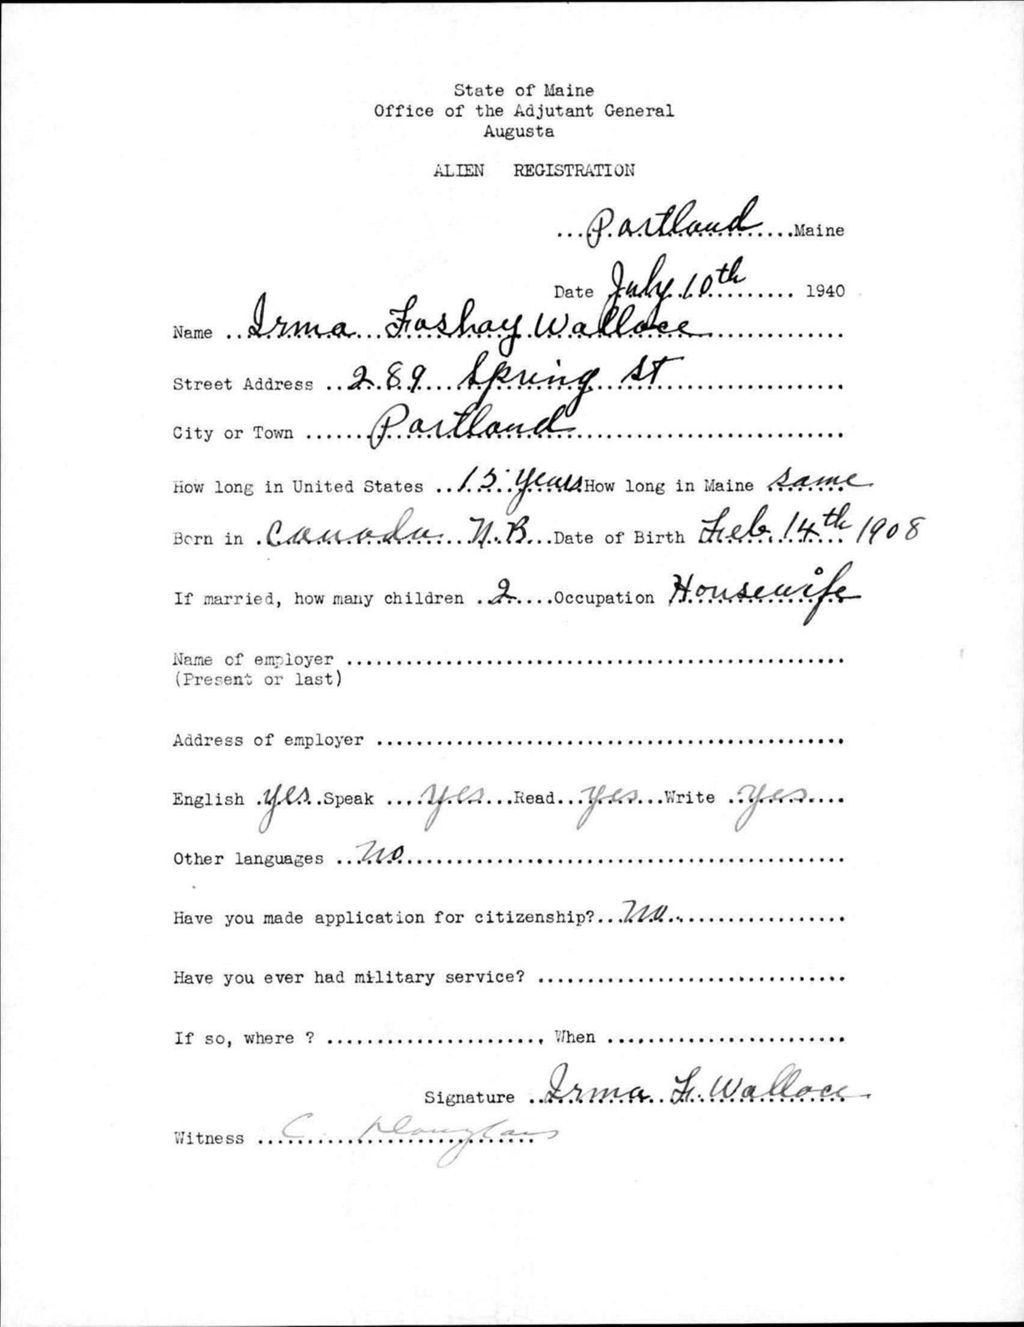 State of Maine
Office of the Adjutant General
Augusta
ALIEN REGISTRATION
...Portland....Maine
Date July 10th......... 1940
Name ..Irma...Foshay Wallace................
Street Address ..289...Spring St....................
City or Town ......Portland................................
How long in United States ..15 years How long in Maine same
Born in .Canada...N.B...Date of Birth Feb. 14th 1908
If married, how many children .2....Occupation Housewife
Name of employer ............................................................
(Present or last)
Address of employer ........................................................
English .yes..Speak ....yes...Read...yes...Write ..yes....
Other languages ...No.....................................................
Have you made application for citizenship?...No....................
Have you ever had military service? .....................................
If so, where ? .......................... When .............................
Signature ..Irma. F. Wallace
Witness ...C. Douglass